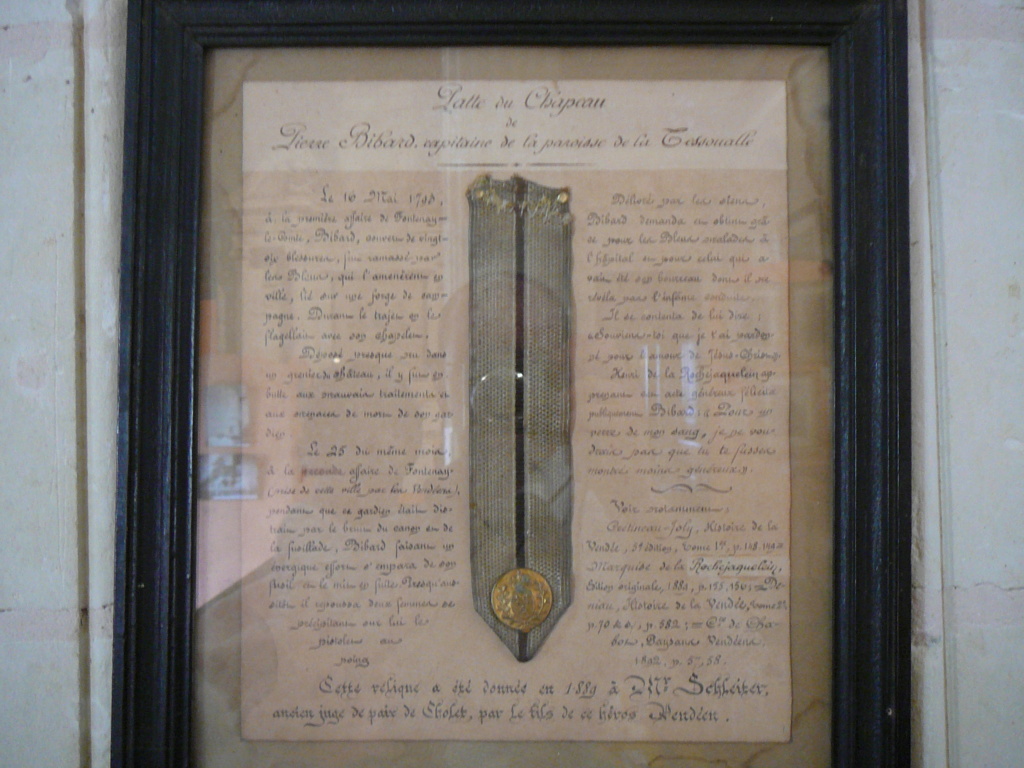 Patte du Chapeau
de
Pierre Bibard, capitaine de la paroisse de la Tessoualle
Le 16 Mai 1793,
à la première affaire de Fontenay-
le-Comte, Bibard, couvert de vingt-
six blessures, fut ramassé par
les Bleus, qui l'amenèrent en
ville, lié sur une forge de cam-
pagne. Durant le trajet on le
flagellait avec son chapelet.
Déposé presque nu dans
un grenier du château, il y fut en
butte aux mauvais traitements et
aux menaces de mort de son gar-
dien
Le 25 du même mois,
à la seconde affaire de Fontenay
(prise de cette ville par les Vendéens),
pendant que ce gardien était dis-
trait par le bruit du canon et de
la fusillade, Bibard faisant un
énergique effort s'empara de son
fusil et le mit en fuite. Presqu'aus-
sitôt il repoussa deux femmes se
précipitant sur lui le
pistolet au
poing
Délivrés par les siens,
Bibard demanda et obtint grâ-
ce pour les Bleus malades à
l'hôpital et pour celui qui a-
vait été son bourreau dont il ne
révéla pas l'infâme conduite.
Il se contenta de lui dire :
« Souviens-toi que je t'ai pardon-
né pour l'amour de Jésus-Christ »
Henri de la Rochejaquelein ap-
prenant cet acte généreux félicita
publiquement Bibard : « Pour un
verre de mon sang, je ne vou-
drais pas que tu te fusses
montré moins généreux ».
Voir notamment :
Crétineau-Joly, Histoire de la
Vendée, 5e édition, tome 1er, p. 118
Marquise de la Rochejaquelein,
édition originale, 1889, p. 155, 156 ; De-
niau, Histoire de la Vendée, tome
p. 70 &, p. 582 ; Cte de Cha-
bot, Paysans Vendéens
1892, p. 57, 58.
Cette relique a été donnée en 1889 à Mr Schleiter,
ancien juge de paix de Cholet, par le fils de ce héros Vendéen.